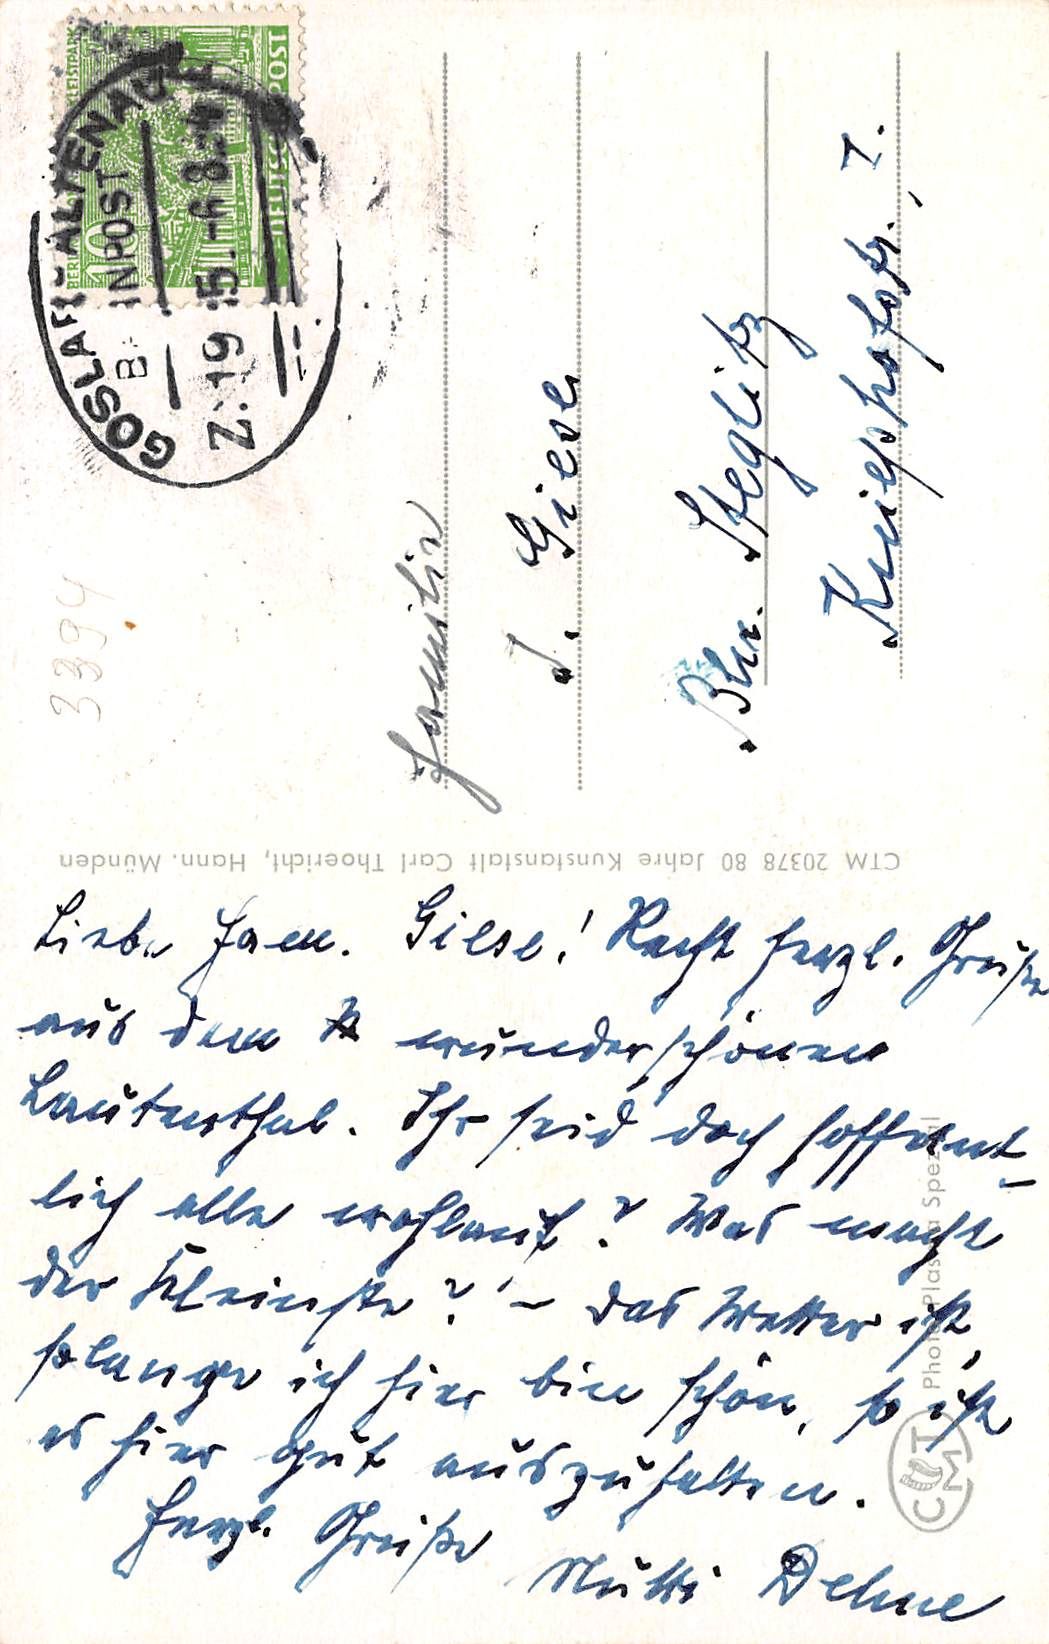 GOSLAR-ALTENAU
BAHNPOST
Z. 19 15.-6 8.-4
10
DEUTSCHE POST
3394
Familie
J. Giese
Bln. Steglitz
Kniephofstr. 7.
CTM 20378 80 Jahre Kunstanstalt Carl Thoericht, Hann. Münden
Liebe Fam. Giese! Recht herzl. Grüße
aus dem wunderschönen
Lautenthal. Ihr seid doch hoffent-
lich alle wohlauf? Was macht
der Kleinste? – das Wetter ist,
solange ich hier bin schön, so ist
es hier gut auszuhalten.
Herzl. Grüße
Mutti Dehne
Photo-Plastica Spezial
CTM